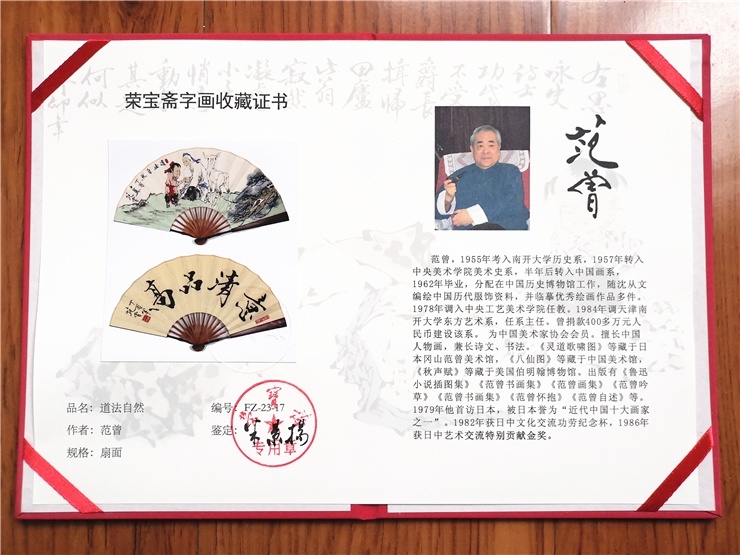 荣宝斋字画收藏证书
高品清风
品名：道法自然
编号：FZ-23-17
作者：范曾
鉴定：
规格：扇面
专用章
范曾
范曾，1955年考入南开大学历史系，1957年转入
中央美术学院美术史系，半年后转入中国画系，
1962年毕业，分配在中国历史博物馆工作，随沈从文
编绘中国历代服饰资料，并临摹优秀绘画作品多件。
1978年调入中央工艺美术学院任教。1984年调天津南
开大学东方艺术系，任系主任。曾捐款400多万元人
民币建设该系。 为中国美术家协会会员。擅长中国
人物画，兼长诗文、书法。《灵道歌啸图》等藏于日
本冈山范曾美术馆，《八仙图》等藏于中国美术馆，
《秋声赋》等藏于美国伯明翰博物馆。出版有《鲁迅
小说插图集》《范曾书画集》《范曾画集》《范曾吟
草》《范曾书画集》《范曾怀抱》《范曾自述》等。
1979年他首访日本，被日本誉为“近代中国十大画家
之一”。1982年获日中文化交流功劳纪念杯，1986年
获日中艺术交流特别贡献金奖。